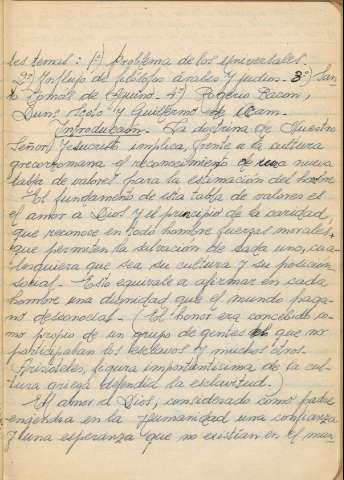 tes temas: 1º) Problema de los universales.
2º) Influjo de filósofos árabes y judíos. 3º) San-
to Tomás de Aquino. 4º) Rogerio Bacon,
Duns Scoto y Guillermo de Ocam.
Introducción. La doctrina de Nuestro
Señor Jesucristo implica, frente a la cultura
grecorromana el reconocimiento de una nueva
tabla de valores para la estimación del hombre
El fundamento de esta tabla de valores es
el amor a Dios y el principio de la caridad,
que reconoce en todo hombre fuerzas morales,
que permiten la salvación de cada uno, cua-
lesquiera que sea su cultura y su posición
social. Esto equivale a afirmar en cada
hombre una dignidad que el mundo paga-
no desconoció. (El honor era concebido co-
mo propio de un grupo de gentes del que no
participaban los esclavos y muchos otros.
Aristóteles, figura importantísima de la cul-
tura griega defendía la esclavitud.)
El amor a Dios, considerado como padre
engendra en la humanidad una confianza
y una esperanza que no existían en el mun-